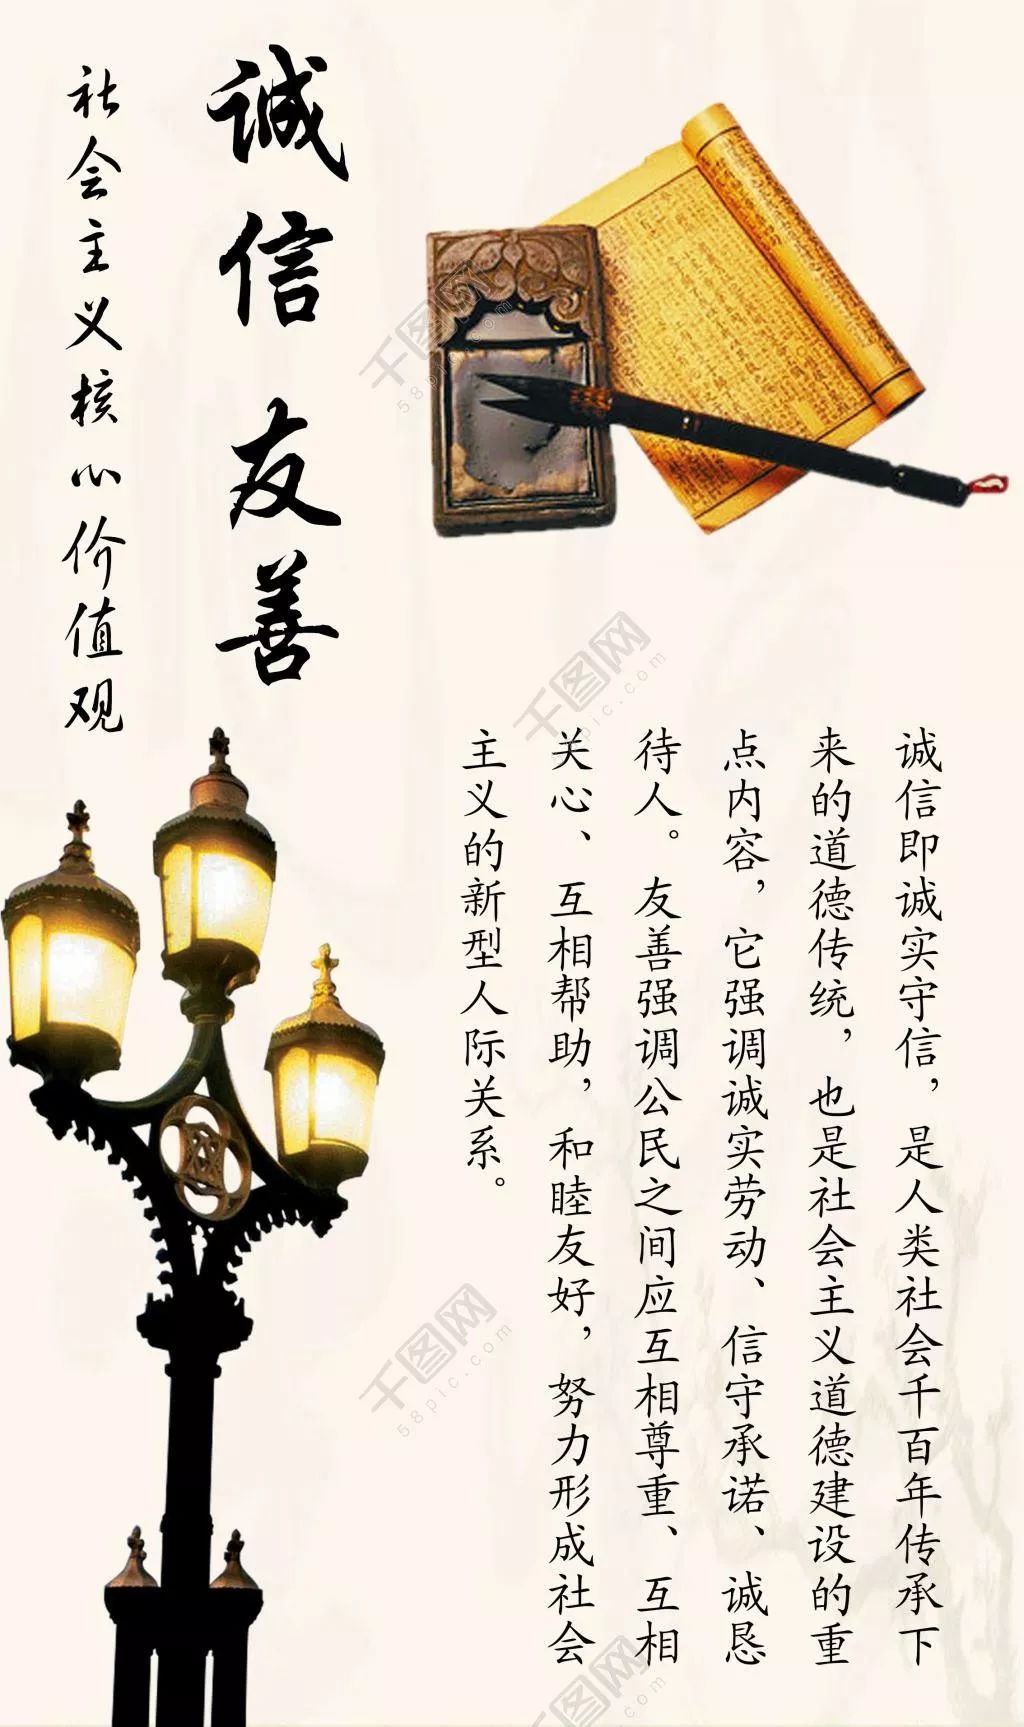 社会主义核心价值观
诚信友善
诚信即诚实守信，是人类社会千百年传承下
来的道德传统，也是社会主义道德建设的重
点内容，它强调诚实劳动、信守承诺、诚恳
待人。友善强调公民之间应互相尊重、互相
关心、互相帮助，和睦友好，努力形成社会
主义的新型人际关系。
千图网
58pic.com
千图网
58pic.com
千图网
58pic.com
千图网